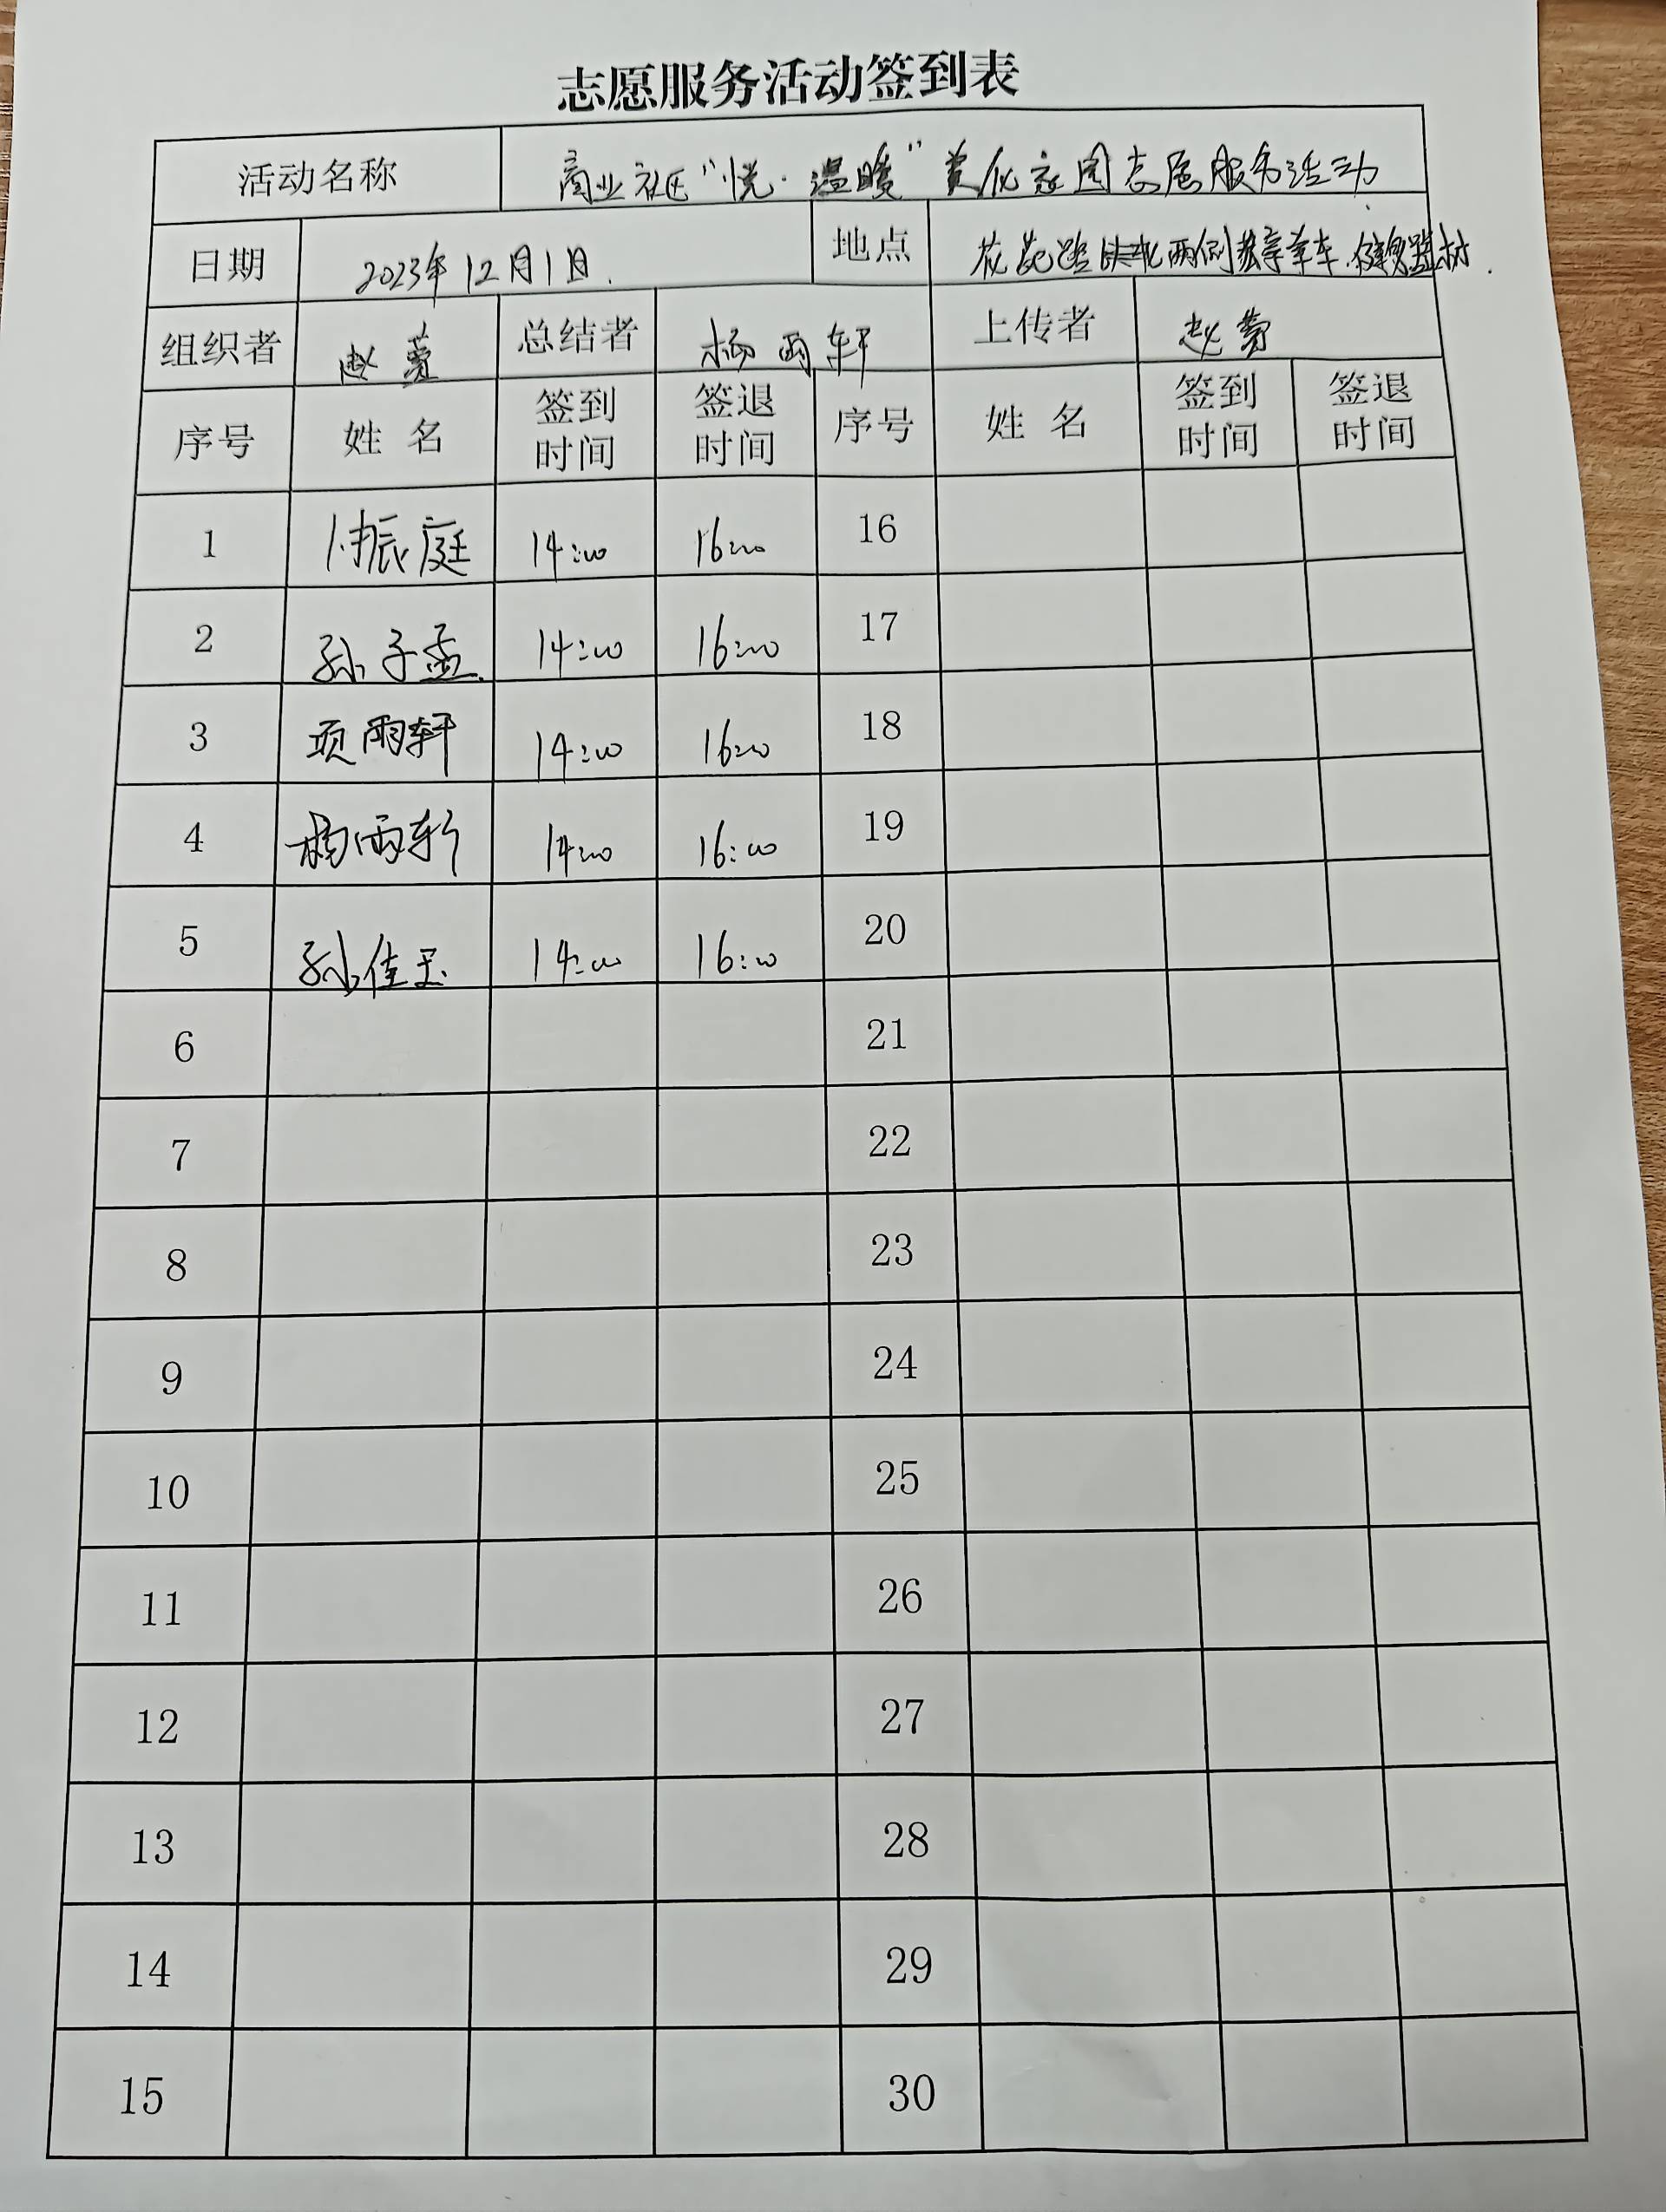 志愿服务活动签到表
活动名称 商业社区“悦·温暖”美化家园志愿服务活动
日期 2023年12月1日. 地点 花苑路 两侧共享单车.
组织者 赵 总结者 杨雨轩 上传者 赵
序号 姓名 签到时间 签退时间 序号 姓名 签到时间 签退时间
1 付振庭 14:00 16:00 16
2 孙子孟 14:00 16:00 17
3 项雨轩 14:00 16:00 18
4 杨雨轩 14:00 16:00 19
5 孙佳玉 14:00 16:00 20
6 21
7 22
8 23
9 24
10 25
11 26
12 27
13 28
14 29
15 30